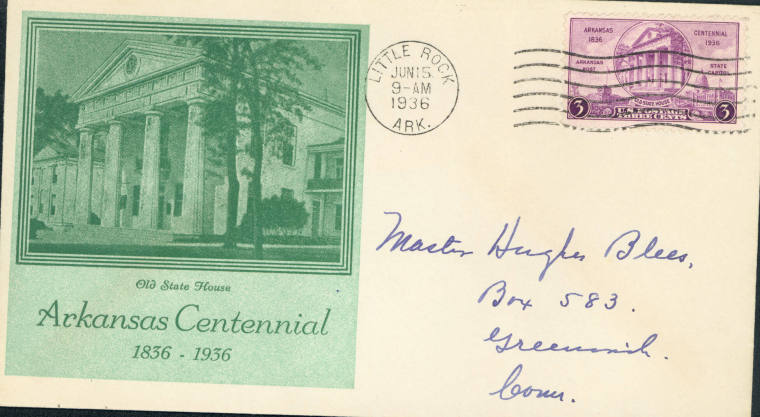 Old State House
Arkansas Centennial
1836 - 1936
LITTLE ROCK
JUN 15
9-AM
1936
ARK.
ARKANSAS
1836
CENTENNIAL
1936
ARKANSAS
POST
STATE
CAPITOL
OLD STATE HOUSE
3
U.S. POSTAGE
THREE CENTS
3
Master Hughes Blees,
Box 583.
Greenwich.
Conn.